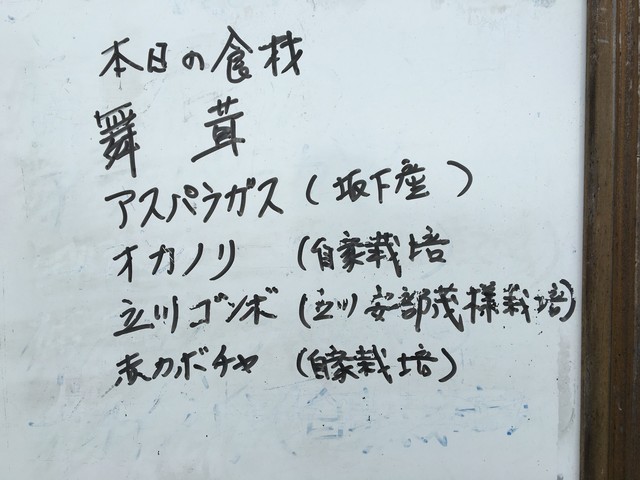 本日の食材
舞茸
アスパラガス (坂下産)
オカノリ (自家栽培
立川ゴンボ (立川 安部茂様栽培)
赤カボチャ (自家栽培)